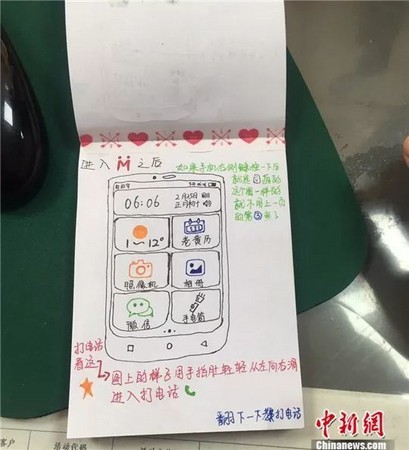 进入 M 之后
如果手机右侧键按一下后
就是
这个图一样的
就不用上一页
的第③步了
06:06
2月25日
正月初十
1~12°
老黄历
照像机
相册
微信
手电筒
打电话
看这
图上的样子用手指肚轻轻从左向右滑
进入打电话
翻下一下打电话
客户
活动代码
中新网
Chinanews.com